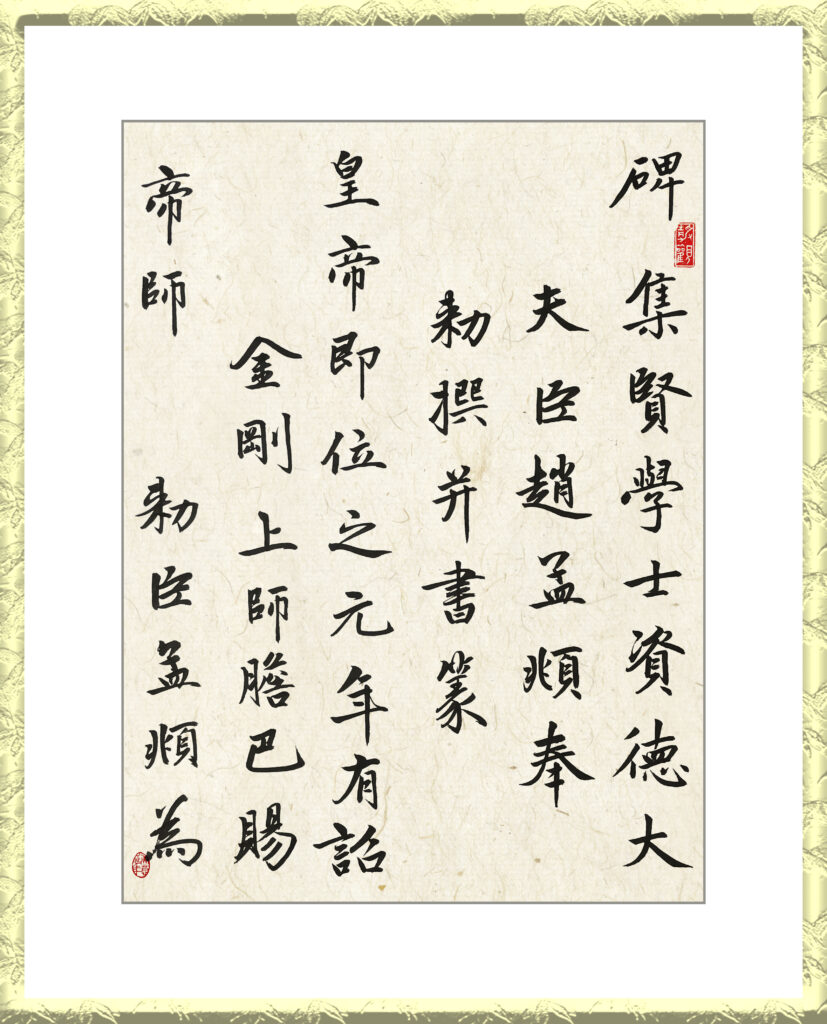 碑 集賢學士資德大
夫臣趙孟頫奉
勅撰并書篆
皇帝即位之元年有詔
金剛上師膽巴賜
帝師 勅臣孟頫為